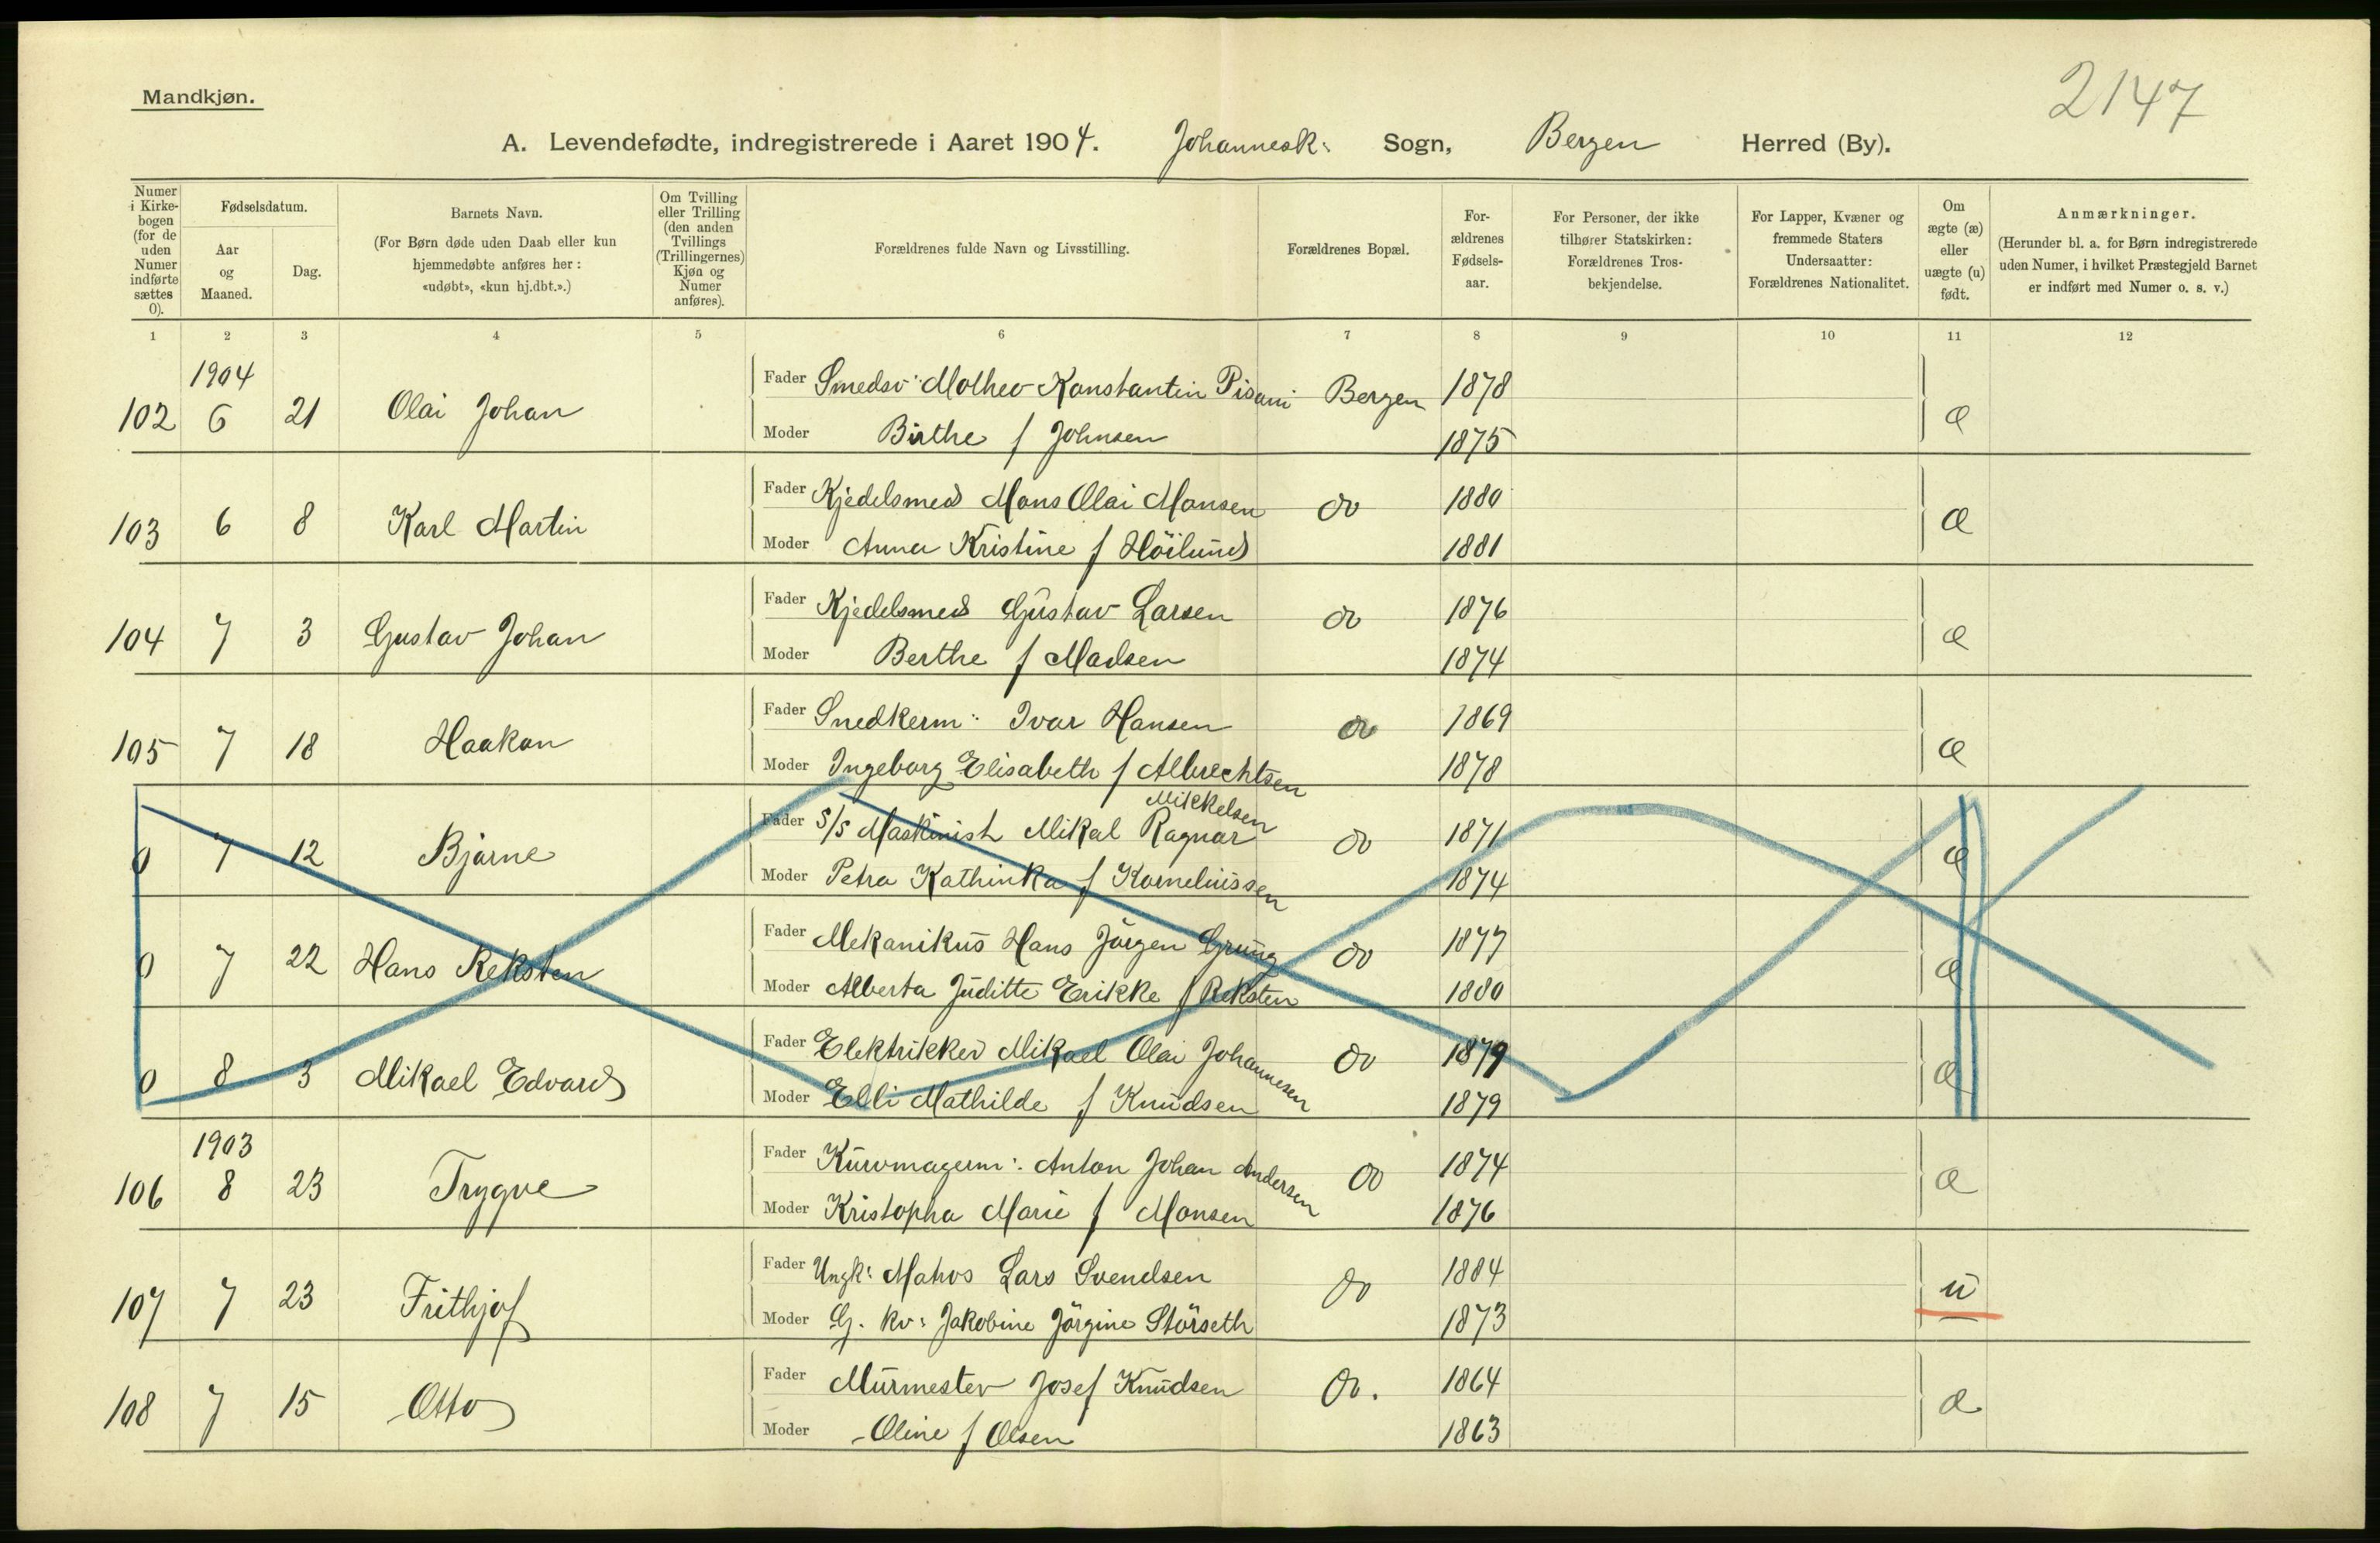 2147
Mandkjøn.
A. Levendefødte, indregistrerede i Aaret 1904. Johannesk: Sogn, Bergen Herred (By).
Numer i Kirke-bogen (for de uden Numer indførte sættes 0).
Fødselsdatum.
Aar og Maaned.
Dag.
Barnets Navn.
(For Børn døde uden Daab eller kun hjemmedøbte anføres her: «udøbt», «kun hj.dbt.».)
Om Tvilling eller Trilling (den anden Tvillings (Trillingernes) Kjøn og Numer anføres).
Forældrenes fulde Navn og Livsstilling.
Forældrenes Bopæl.
For-ældrenes Fødsels-aar.
For Personer, der ikke tilhører Statskirken: Forældrenes Tros-bekjendelse.
For Lapper, Kvæner og fremmede Staters Undersaatter: Forældrenes Nationalitet.
Om ægte (æ) eller uægte (u) født.
Anmærkninger.
(Herunder bl. a. for Børn indregistrerede uden Numer, i hvilket Præstegjeld Barnet er indført med Numer o. s. v.)
1 2 3 4 5 6 7 8 9 10 11 12
1904
102 6 21 Olai Johan Fader Smedsv: Motheo Konstantin Pisani Bergen 1878 æ
Moder Birthe f Johnsen 1875
103 6 8 Karl Martin Fader Kjedelsmed Mons Olai Monsen do 1880 æ
Moder Anna Kristine f Höilund 1881
104 7 3 Gustav Johan Fader Kjedelsmed Gustav Larsen do 1876 æ
Moder Berthe f Madsen 1874
105 7 18 Haakon Fader Snedkerm: Ivar Hansen do 1869 æ
Moder Ingeborg Elisabeth f Albrechtsen 1878
0 7 12 Bjarne Fader S/S Maskinist Mikal Ragnar Mikkelsen do 1871 æ
Moder Petra Kathinka f Korneliussen 1874
0 7 22 Hans Reksten Fader Mekanikus Hans Jörgen Grung do 1877 æ
Moder Alberta Juditte Erikke f Reksten 1880
0 8 3 Mikael Edvard Fader Elektriker Mikael Olai Johannesen do 1879 æ
Moder Elli Mathilde f Knudsen 1879
1903
106 8 23 Trygve Fader Kurvmagerm: Anton Johan Andersen do 1874 æ
Moder Kristopha Marie f Monsen 1876
107 7 23 Frithjof Fader Ungk: Matros Lars Svendsen do 1884 u
Moder G. kv: Jakobine Jörgine Störseth 1873
108 7 15 Otto Fader Murmester Josef Knudsen do. 1864 æ
Moder Oline f Olsen 1863